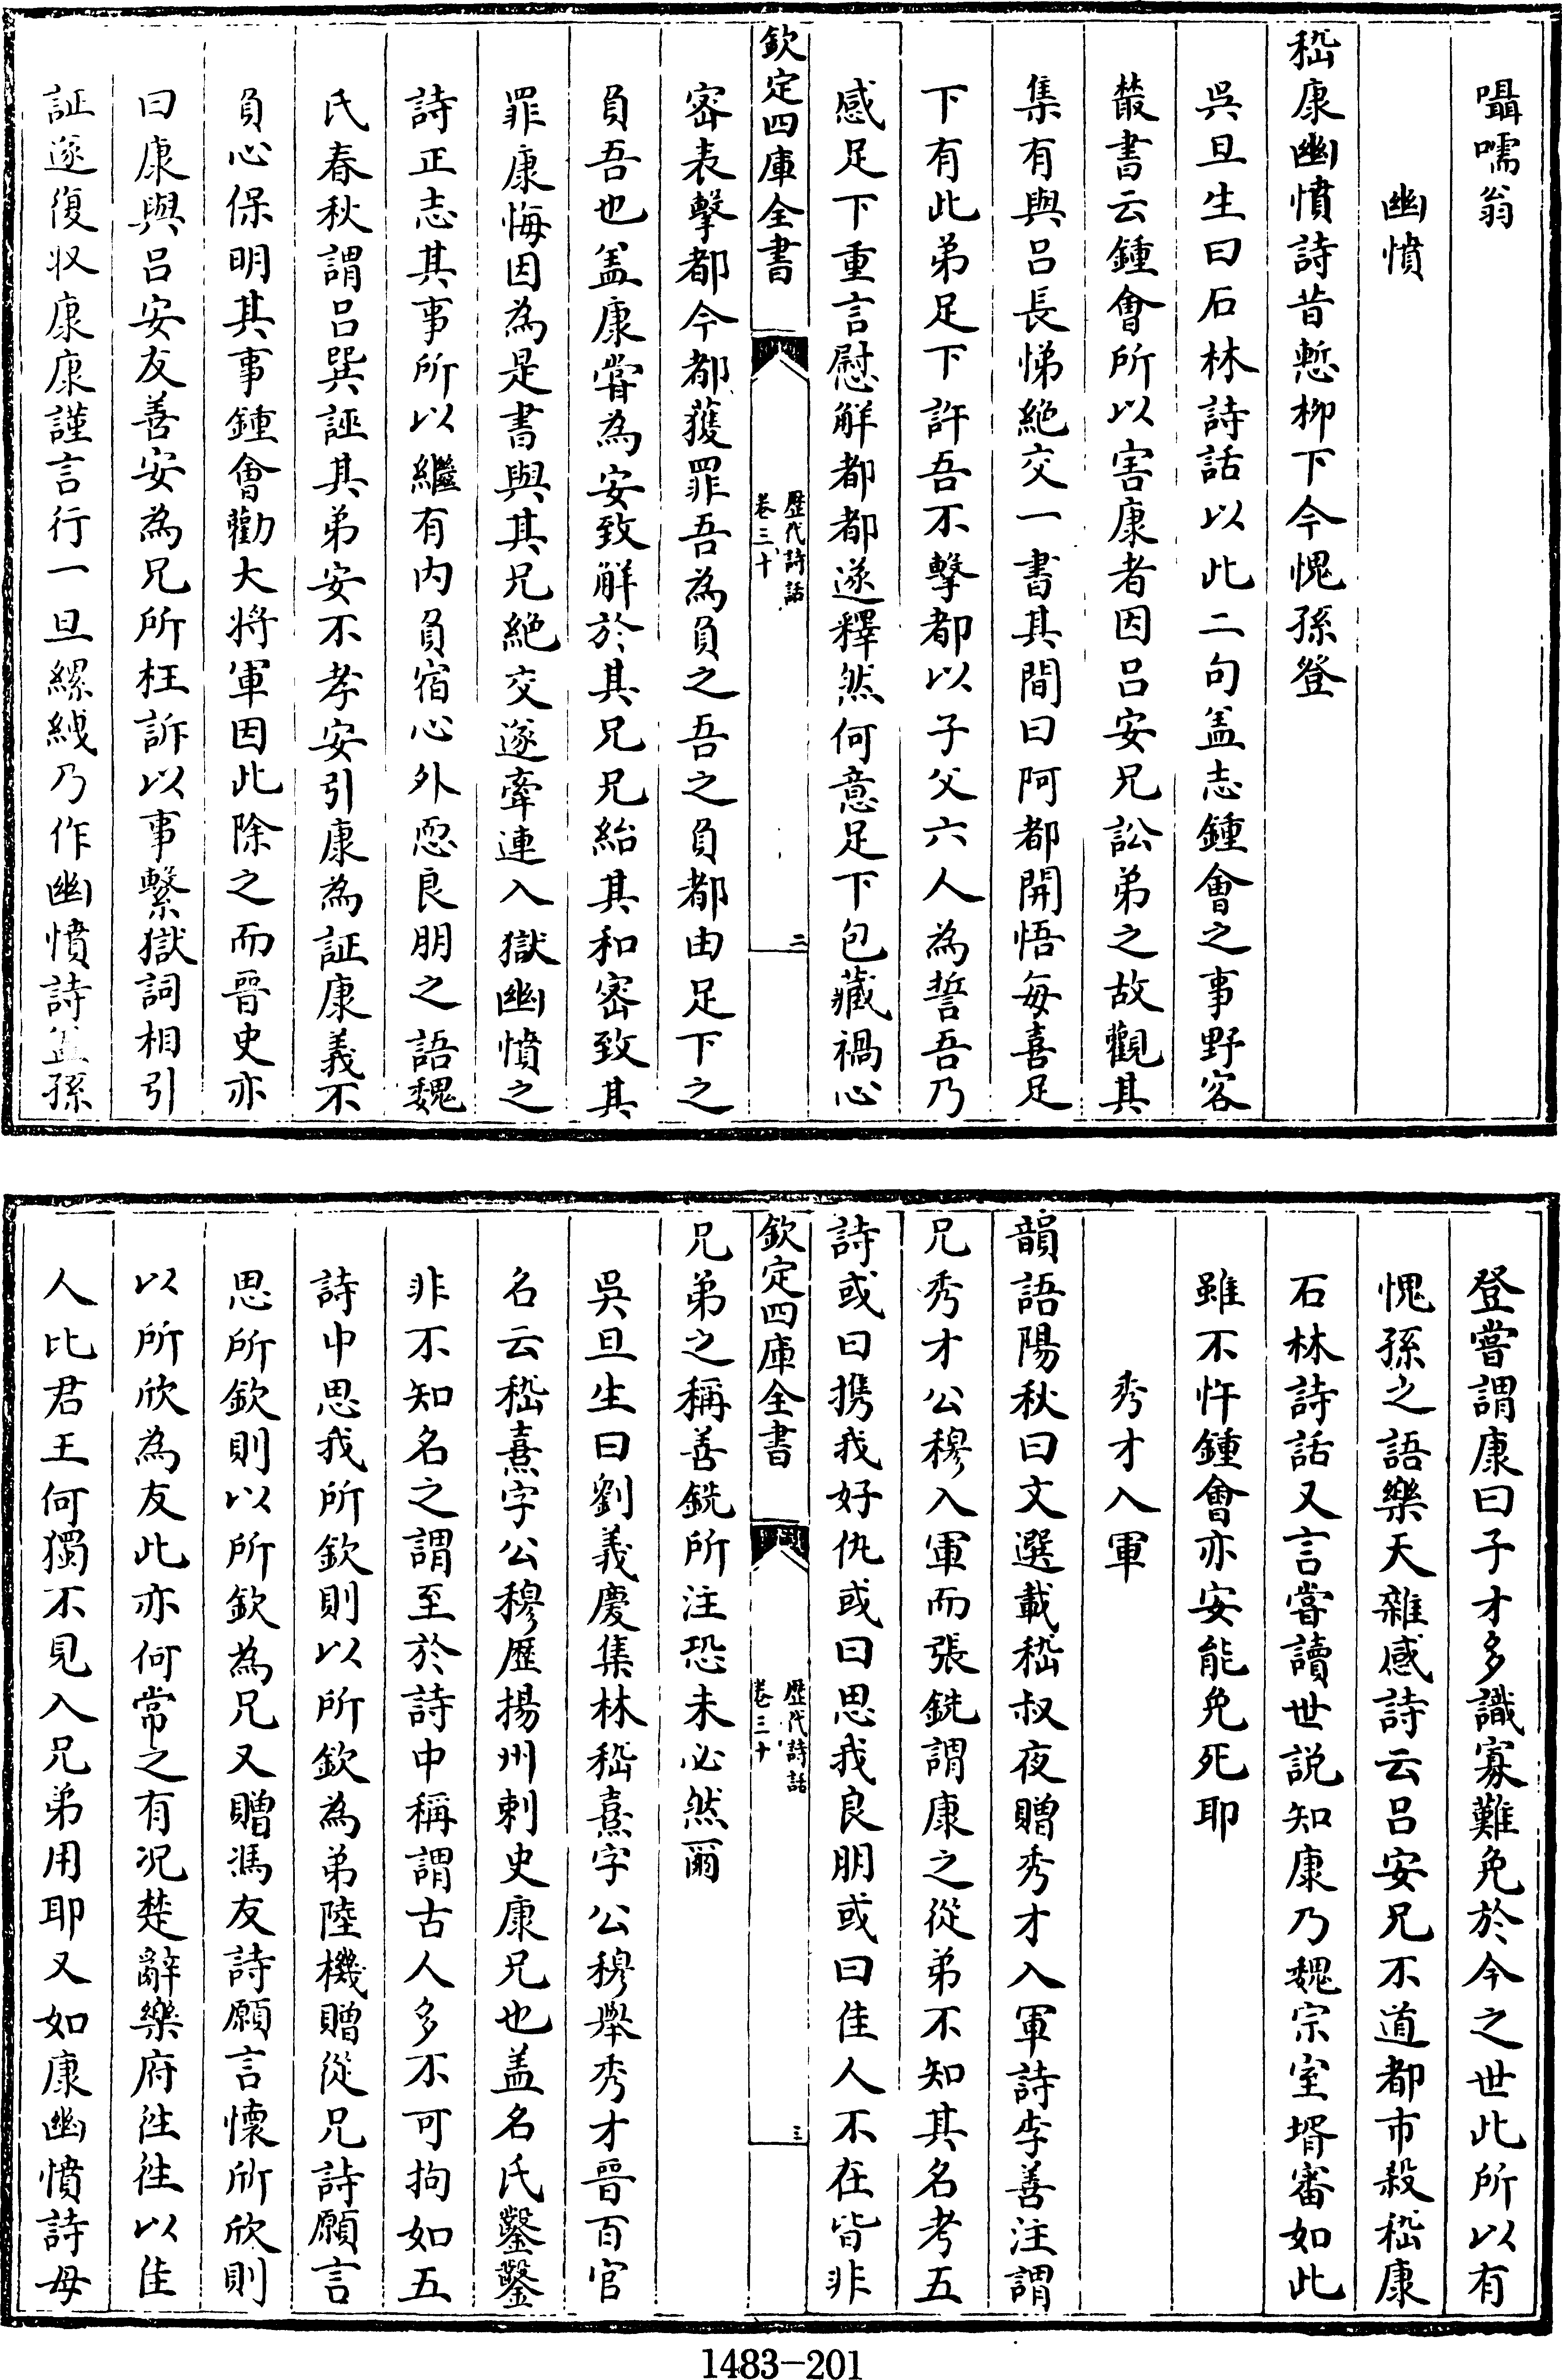 囁嚅翁
幽憤
嵇康幽憤詩昔慙栁下今愧孫登
吳旦生曰石林詩話以此二句盖志鍾會之事野客
叢書云鍾會所以害康者因吕安兄訟弟之故觀其
集有與吕長悌絶交一書其間曰阿都開悟每喜足
下有此弟足下許吾不擊都以子父六人為誓吾乃
感足下重言慰解都都遂釋然何意足下包藏禍心
欽定四庫全書
歷代詩話
卷三十
二
宻表擊都今都獲罪吾為負之吾之負都由足下之
負吾也盖康甞為安致解於其兄兄紿其和宻致其
罪康悔因為是書與其兄絶交遂牽連入獄幽憤之
詩正志其事所以繼有内負宿心外恧良朋之語魏
氏春秋謂吕巽誣其弟安不孝安引康為証康義不
負心保明其事鍾會勸大将軍因此除之而晉史亦
曰康與吕安友善安為兄所枉訴以事繫獄詞相引
証遂復収康康謹言行一旦縲絏乃作幽憤詩盖孫
登嘗謂康曰子才多識寡難免於今之世此所以有
愧孫之語樂天雜感詩云吕安兄不道都市殺嵇康
石林詩話又言嘗讀世説知康乃魏宗室壻審如此
雖不忤鍾會亦安能免死耶
秀才入軍
韻語陽秋曰文選載嵇叔夜贈秀才入軍詩李善注謂
兄秀才公穆入軍而張銑謂康之從弟不知其名考五
詩或曰携我好仇或曰思我良朋或曰佳人不在皆非
欽定四庫全書
歷代詩話
卷三十
三
兄弟之稱善銑所注恐未必然爾
吳旦生曰劉義慶集林嵇熹字公穆舉秀才晉百官
名云嵇熹字公穆歷揚州刺史康兄也盖名氏鑿鑿
非不知名之謂至於詩中稱謂古人多不可拘如五
詩中思我所欽則以所欽為弟陸機贈從兄詩願言
思所欽則以所欽為兄又贈馮友詩願言懷所欣則
以所欣為友此亦何常之有况楚辭樂府往往以佳
人比君王何獨不見入兄弟用耶又如康幽憤詩母
1483-201